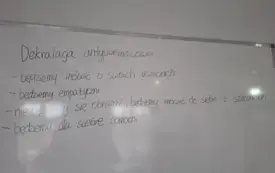 Deklaracja antyprzemocowa
- będziemy mówić o swoich uczuciach
- będziemy empatyczni
- nie się obrażać, będziemy mówić do siebie z szacunkiem
- będziemy dla siebie